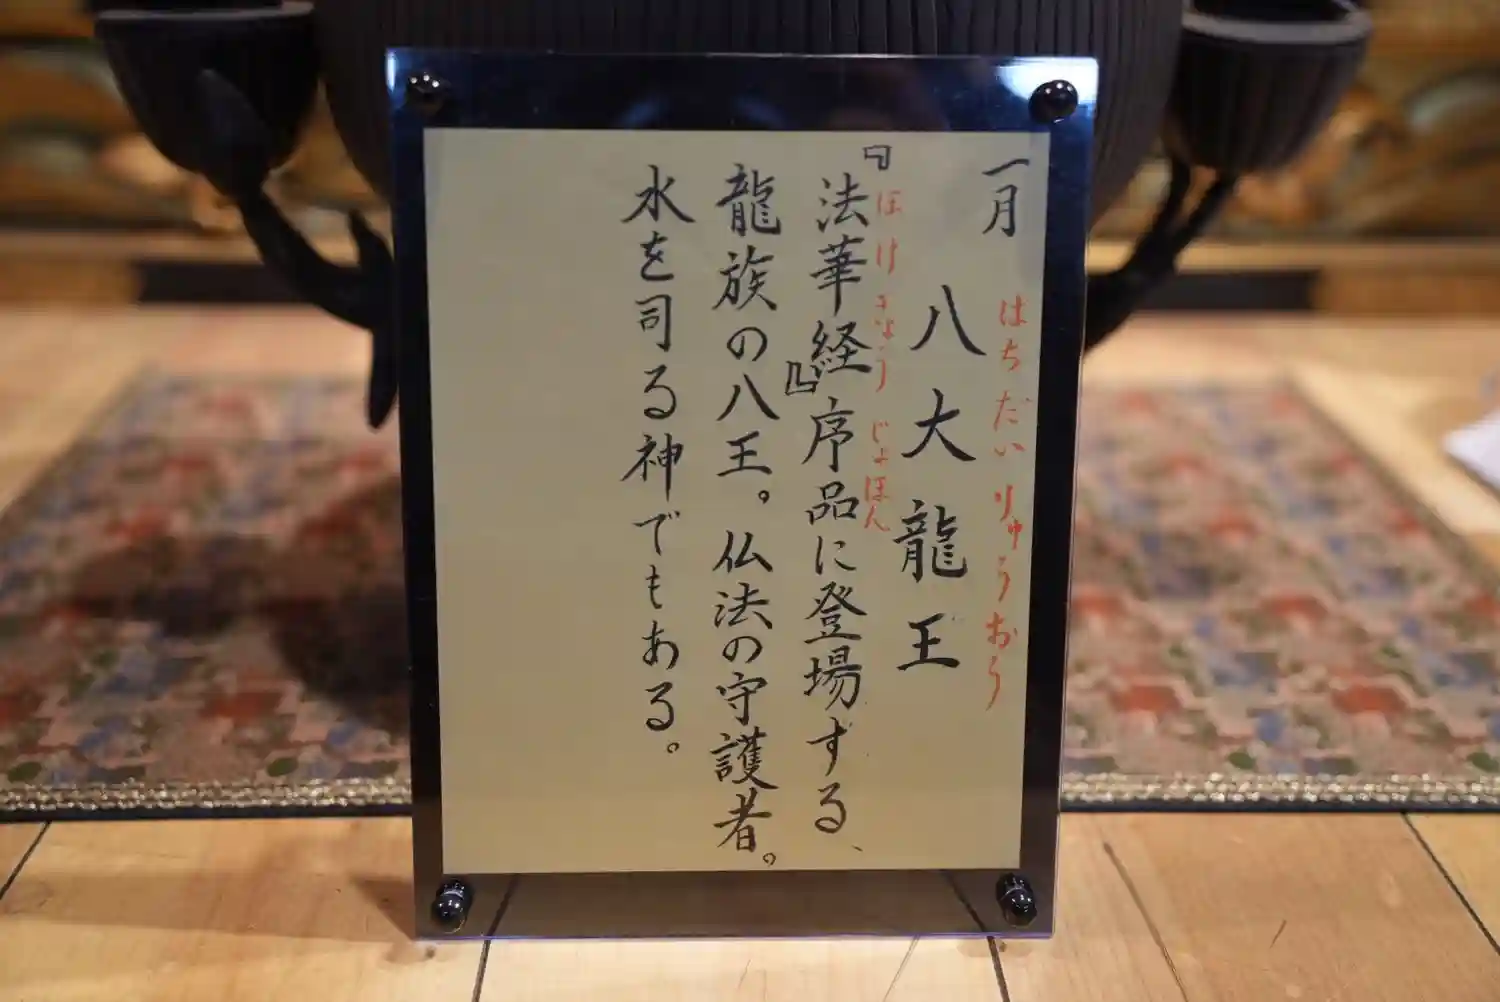 一月
はちだいりゅうおう
八大龍王
ほけきょう じょほん
『法華経』序品に登場する、
龍族の八王。仏法の守護者。
水を司る神でもある。